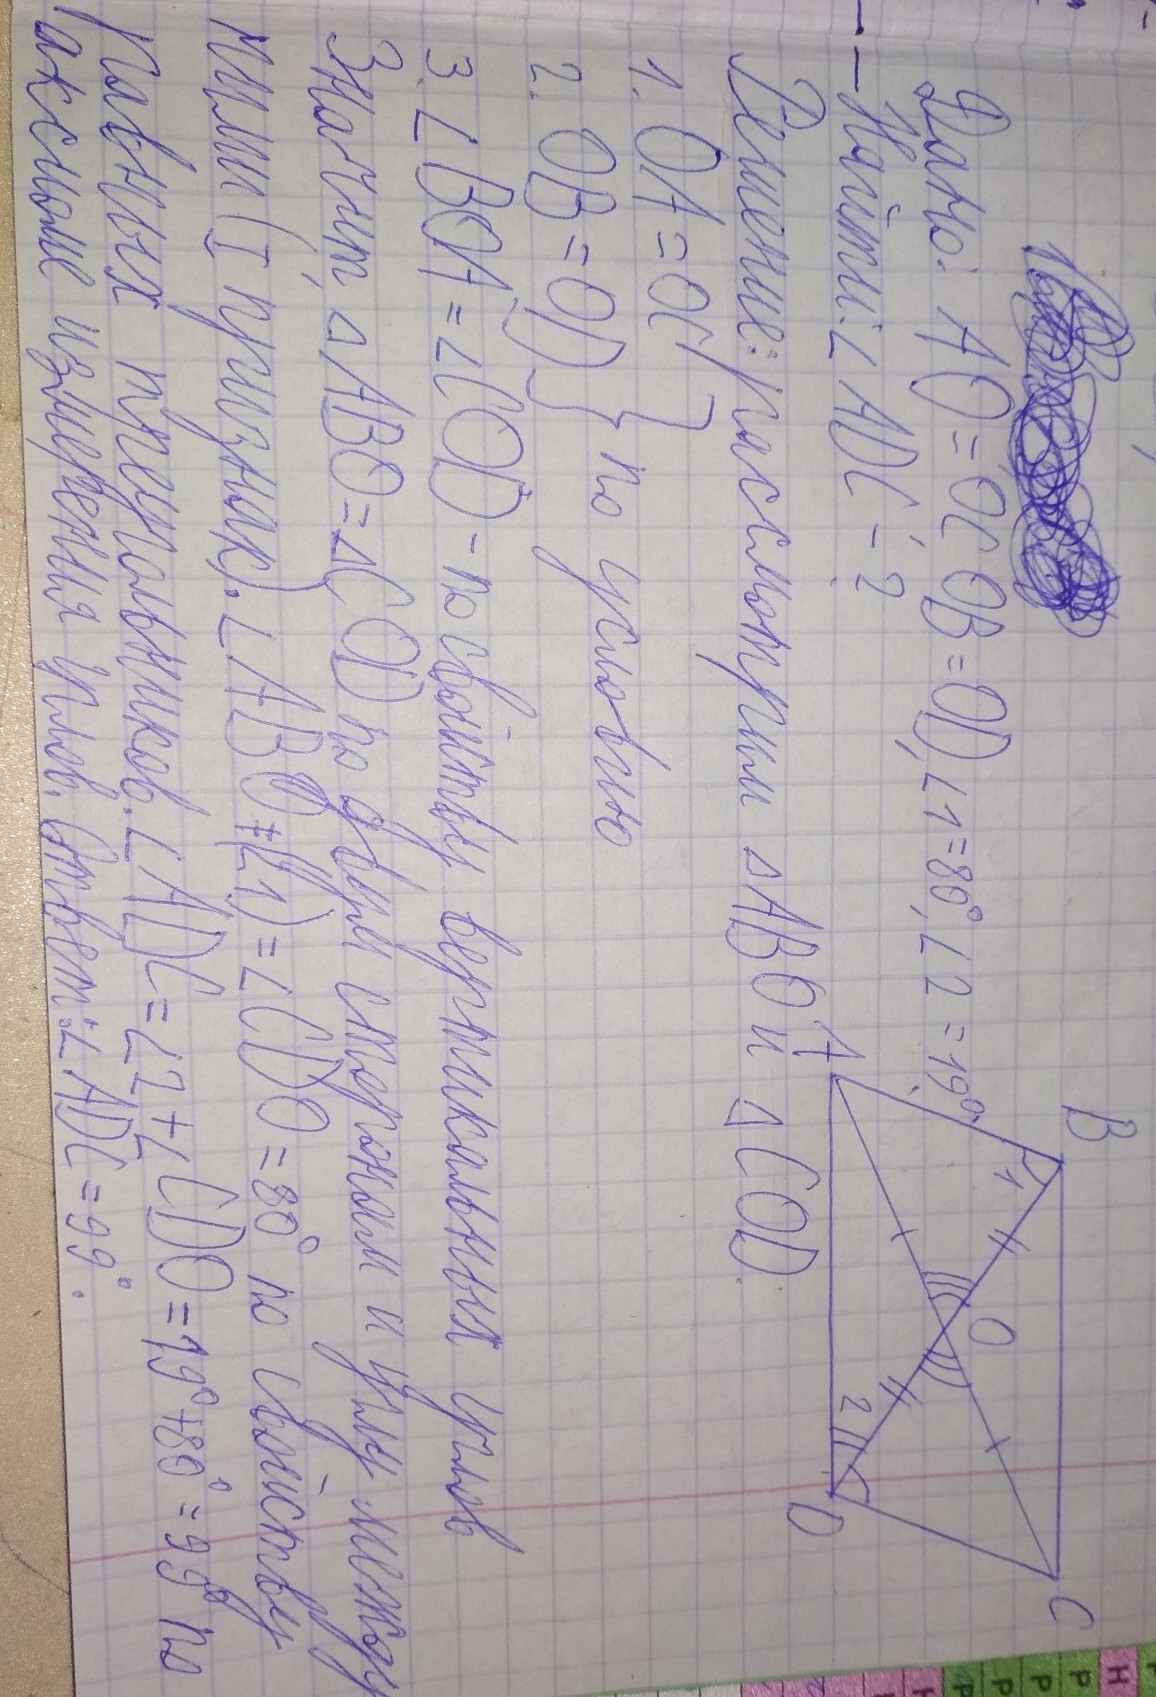 Дано: AO=OC OB=OD, ∠1=80°, ∠2=19°
Найти: ∠ADC-?
Решение: рассмотрим △ABO и △COD.
1. OA=OC
2. OB=OD } по условию
3. ∠BOA=∠COD - по свойству вертикальных углов
Значит, △ABO=△COD по двум сторонам и углу между
ними (I признак). ∠ABO (∠1)=∠CDO=80° по свойству
равных треугольников. ∠ADC=∠2+∠CDO=19°+80°=99° по
аксиоме измерения углов. Ответ: ∠ADC=99°.
B
C
A
D
O
1
2
Н
Р
Р
Р